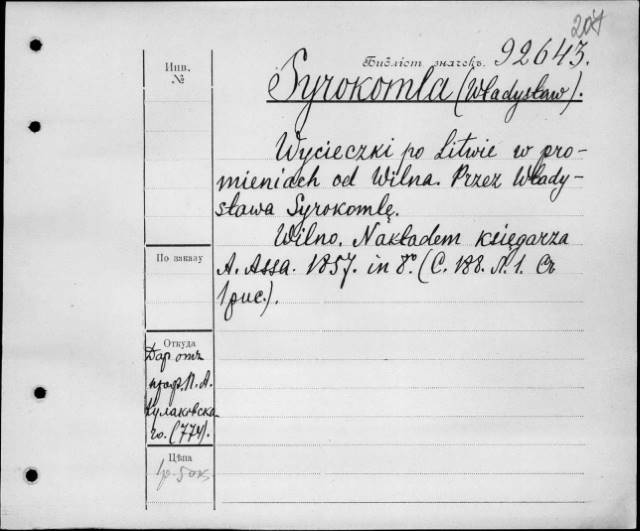 204
Библіот. значекъ. 92643.
Инв.
№
Syrokomla (Władysław).
Wycieczki po Litwie w pro-
mieniach od Wilna. Przez Włady-
sława Syrokomlę.
Wilno. Nakładem księgarza
A. Assa. 1857. in 8° (С. 188. Л. 1. Съ
1 рис.).
По заказу
Откуда
Даръ отъ
проф. П. А.
Кулаковска-
го. (774).
Цѣна
1р. 50к.